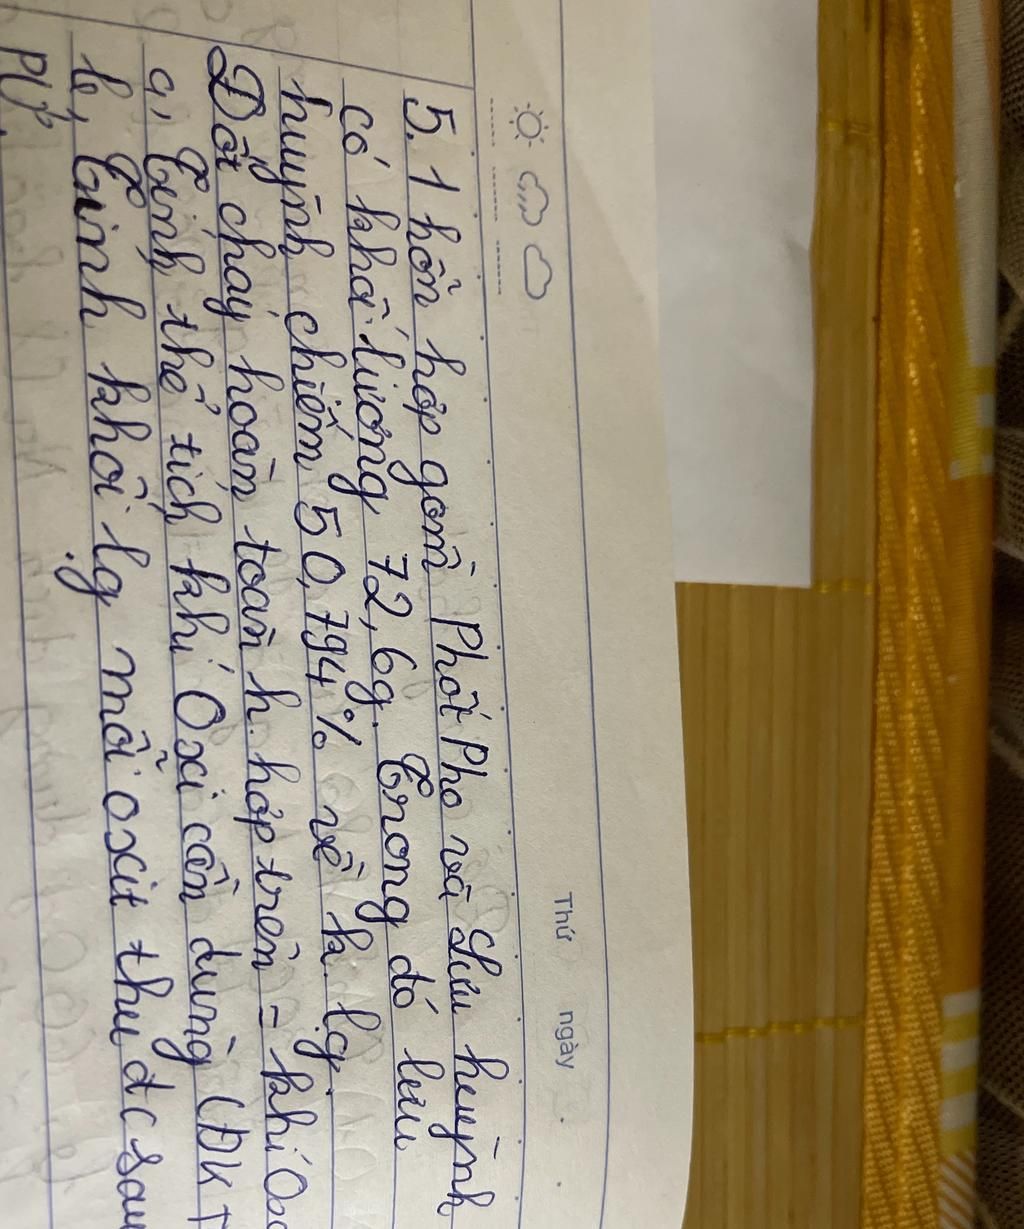 Thứ ngày
5. 1 hỗn hợp gồm Phốt Pho và Lưu huỳnh
có khối lượng 72,6g. Trong đó lưu
huỳnh chiếm 50,794% về k. lg.
Đốt cháy hoàn toàn h. hợp trên = khí Ox
a, Tính thể tích khí Oxi cần dùng (ĐKT
b, Tính khối lg mỗi oxit thu đc sau
PƯ.